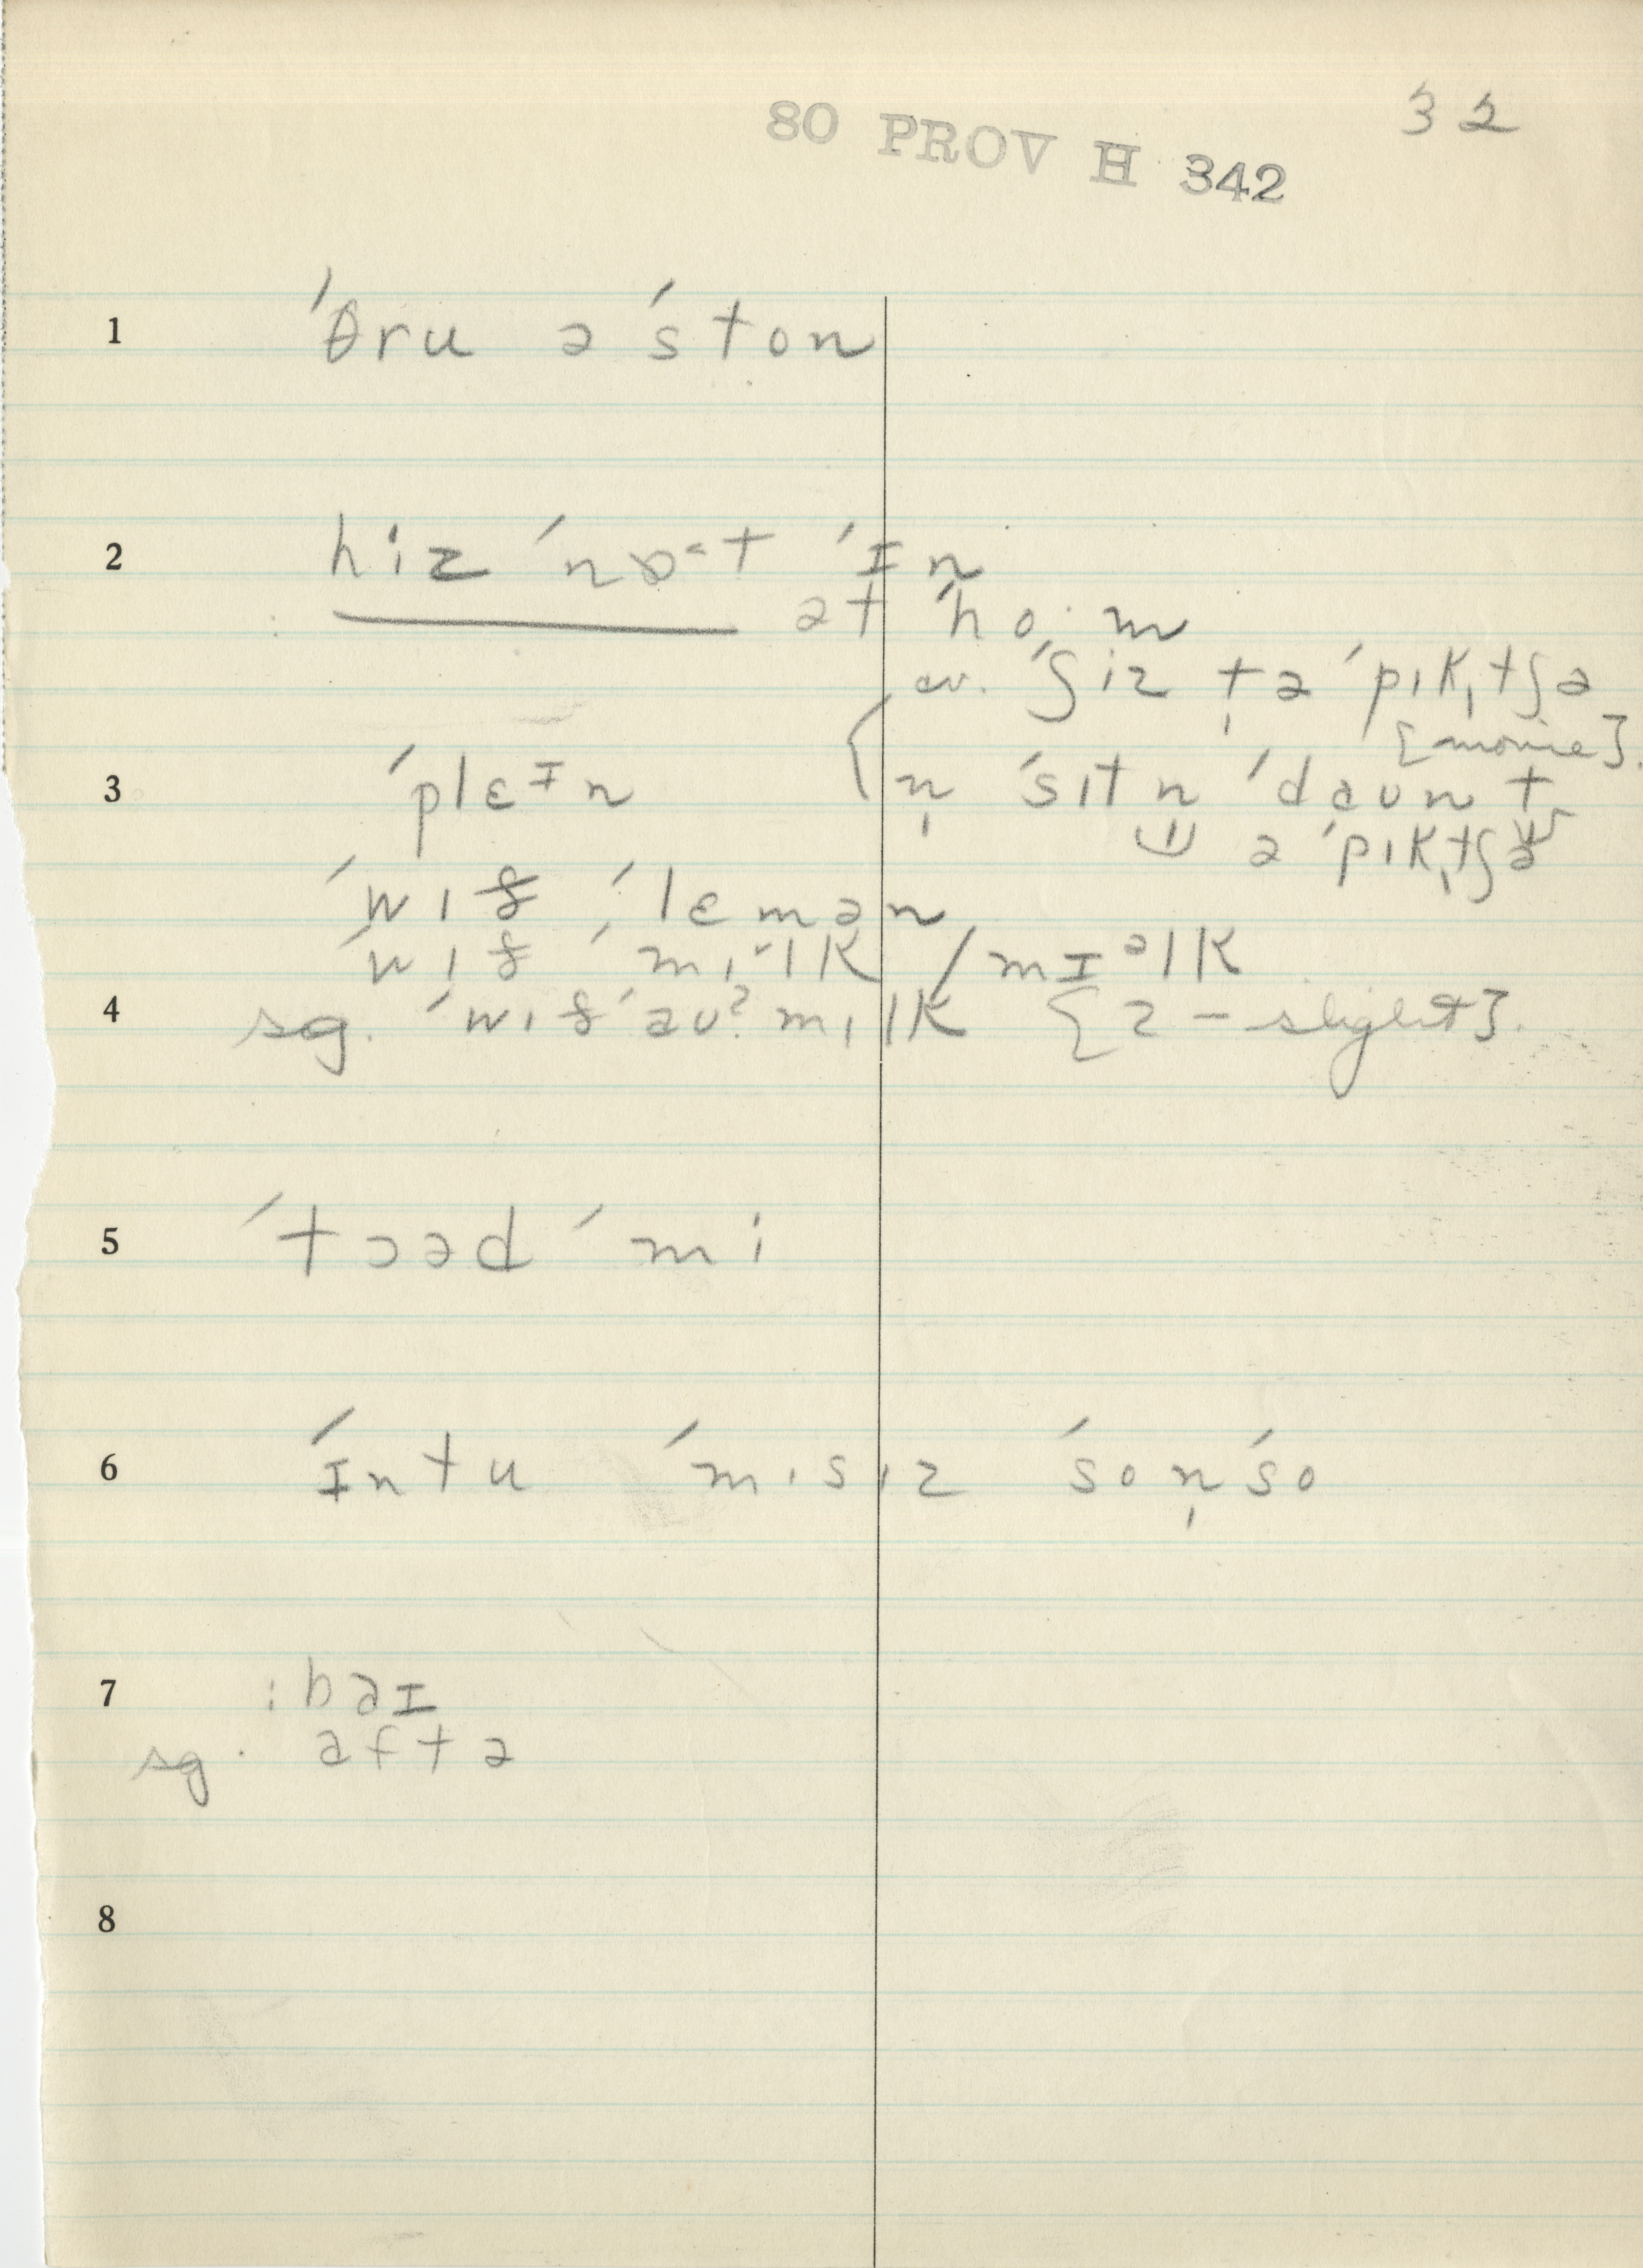 32
80 PROV H 342
1 ˈθru ə ˈston
2 hiz ˈnɒ˂t ˈɪn
ət ˈho·m
cv. ˈʃiz t̩ə ˈpɪk̩tʃə
[movie].
3 ˈplɛɪn
n̩ ˈsɪtn ˈdaun t
ə ˈpɪk̩tʃɚ
ˈwɪð ˈlɛmən
ˈwɪð ˈmɪ˞lk / mɪəlk
4 sg. ˈwɪðˈəuʔ mɪlk [ʔ – slight].
5 ˈtɔəd ˈmi
6 ˈɪntu ˈmɪsɪz ˈson̩ˈso
7 : baɪ
sg. aftə
8